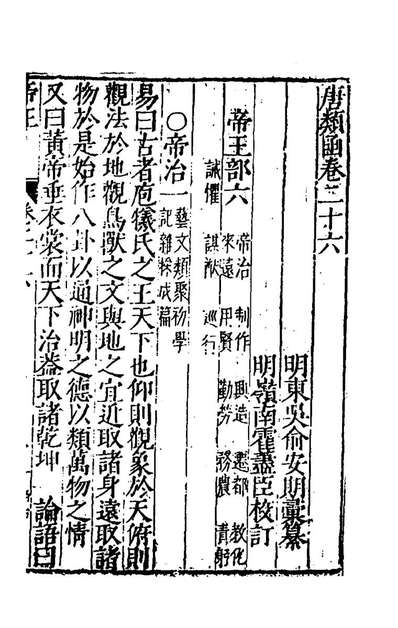 唐類函卷二十六
明東吳俞安期彙纂
明嶺南霍藎臣校訂
帝王部六
帝治 制作 興造 遷都 教化
來遠 用賢 勤勞 務農 責躬
誡懼 謀猷 巡行
○帝治一
藝文類聚初學
記雜採成篇
易曰古者庖犧氏之王天下也仰則觀象於天俯則
觀法於地觀鳥獸之文與地之宜近取諸身遠取諸
物於是始作八卦以通神明之德以類萬物之情
又曰黃帝垂衣裳而天下治蓋取諸乾坤 論語曰
帝王
卷二十六